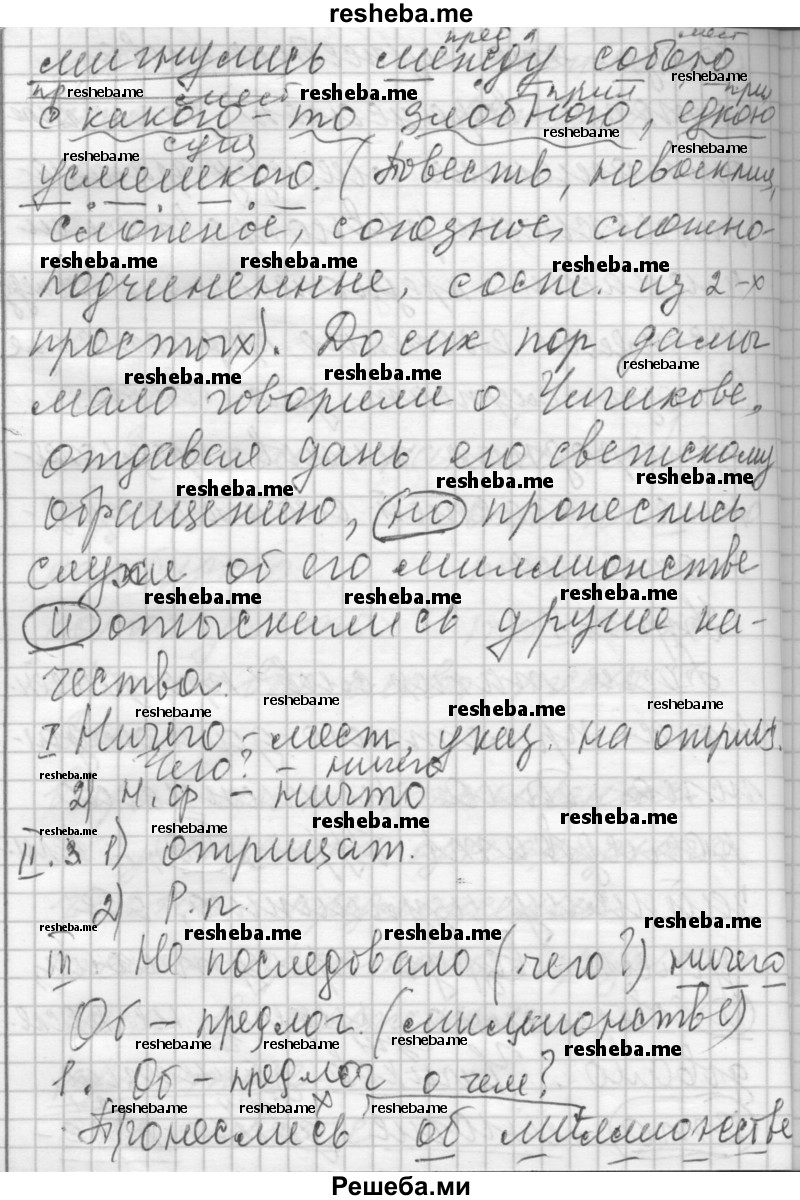 resheba.me
мигнулись между собою
пред мест
с какого-то злобного, едкою
пр мест прил прил
усмешкою. (Повеств, невосклиц,
сущ
сложное, союзное, сложно-
подчиненные, сост. из 2-х
простых). До сих пор дамы
мало говорили о Чичикове,
отдавая дань его светскому
обращению, но пронеслись
слухи об его миллионстве
и отыскались другие ка-
чества.
I Ничего - мест, указ. на отриц.
Чего? - ничего
2) Н.ф - ничто
II. 3. 1) отрицат.
2) Р.п.
III. Не последовало (чего?) ничего
Об - предлог. (миллионстве)
1. Об - предлог о чем?
Пронеслись об миллионстве
Решеба.ми